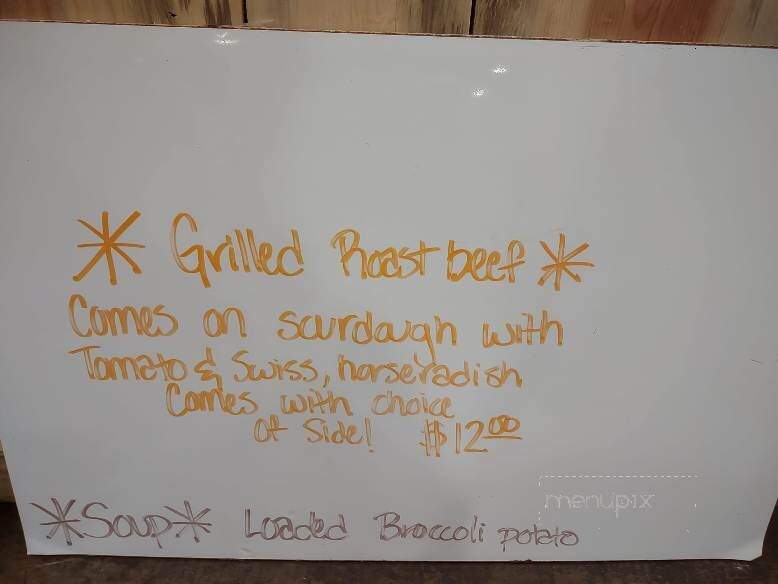 * Grilled Roast beef *
Comes on sourdough with
Tomato & Swiss, horseradish
Comes with choice
of Side! $12.00
*Soup* Loaded Broccoli potato
menupix